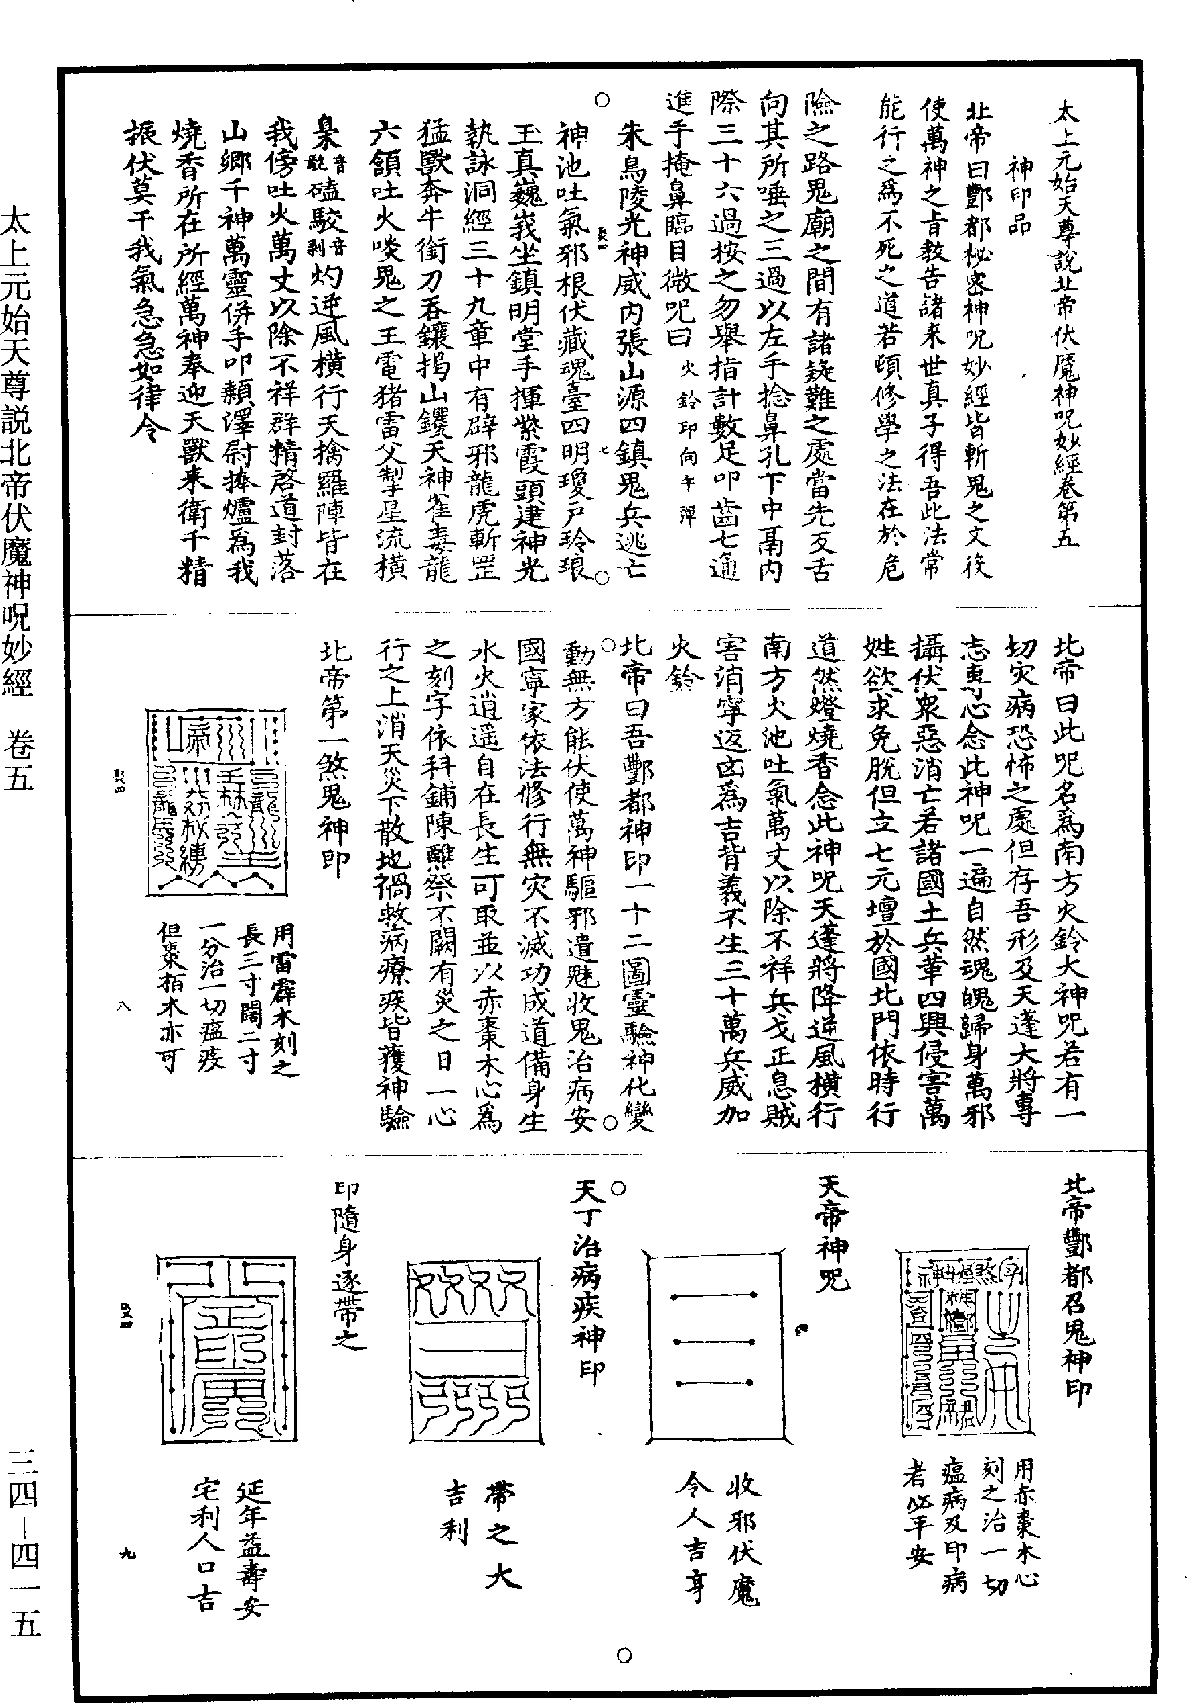 太上元始天尊說北帝伏魔神呪妙經卷第五
神印品
北帝曰酆都秘密神呪妙經皆斬鬼之文役
使萬神之旨教告諸來世真子得吾此法常
能行之為不死之道若頓修學之法在於危
險之路鬼廟之間有諸疑難之處當先反舌
向其所唾之三過以左手捻鼻孔下中鬲內
際三十六過按之勿舉指計數足叩齒七通
進手掩鼻臨目微呪曰 火鈴印向午彈
朱鳥陵光神威內張山源四鎮鬼兵逃亡
神池吐氣邪根伏藏魂臺四明瓊戶玲琅
玉真巍峩坐鎮明堂手揮紫霞頭建神光
執詠洞經三十九章中有辟邪龍虎斬罡
猛獸奔牛銜刀吞鑲搗山钁天神雀毒龍
六領吐火啖鬼之王電猪雷父掣星流橫
梟磕駮灼逆風橫行天擒羅陣皆在
我傍吐火萬丈以除不祥群精啓道封落
山鄉千神萬靈併手叩顙澤尉捧爐為我
燒香所在所經萬神奉迎天獸來衛千精
振伏莫干我氣急急如律令
七
北帝曰此呪名為南方火鈴大神呪若有一
切灾病恐怖之處但存吾形及天蓬大將專
志專心念此神呪一遍自然魂魄歸身萬邪
攝伏衆惡消亡若諸國土兵革四興侵害萬
姓欲求免脫但立七元壇於國北門依時行
道然燈燒香念此神呪天蓬將降逆風橫行
南方火池吐氣萬丈以除不祥兵戈正息賊
害消寧返凶為吉背義不生三十萬兵威加
火鈴
北帝曰吾酆都神印一十二圖靈驗神化變
動無方能伏使萬神驅邪遣魅收鬼治病安
國寧家依法修行無灾不滅功成道備身生
水火逍遥自在長生可取並以赤棗木心為
之刻字依科鋪陳醮祭不闕有災之日一心
行之上消天災下散地禍救病療疾皆獲神驗
北帝第一煞鬼神印
用雷霹木刻之
長三寸闊二寸
一分治一切瘟疫
但棗柏木亦可
八
北帝酆都召鬼神印
用赤棗木心
刻之治一切
瘟病及印病
者必平安
天帝神呪
收邪伏魔
令人吉亨
天丁治病疾神印
帶之大
吉利
印隨身逐帶之
延年益壽安
宅利人口吉
九
太上元始天尊説北帝伏魔神呪妙經 卷五
三四—四一五